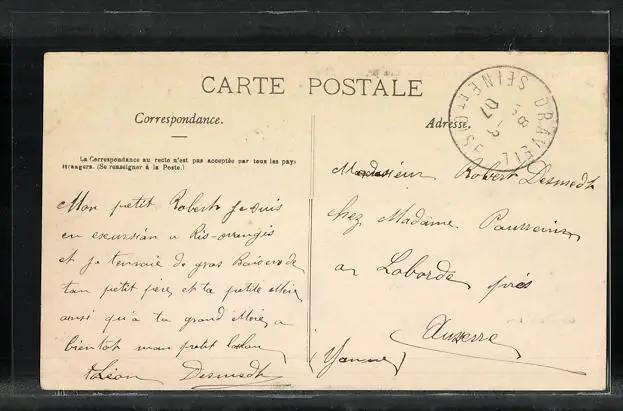 CARTE POSTALE
Correspondance.
La Correspondance au recto n'est pas acceptée par tous les pays
étrangers. (Se renseigner à la Poste.)
Mon petit Robert je suis
en excursion a Ris-orangis
et je t'envoie de gros Baisers de
ton petit père, et ta petite Mère
ainsi qu'a ta grand Mère, a
bientôt mon petit
Léon Desmedt
Adresse.
DRAVEIL
SEINE ET OISE
07
Monsieur Robert Desmedt
chez Madame
a Laborde près
Auxerre
(Yonne)